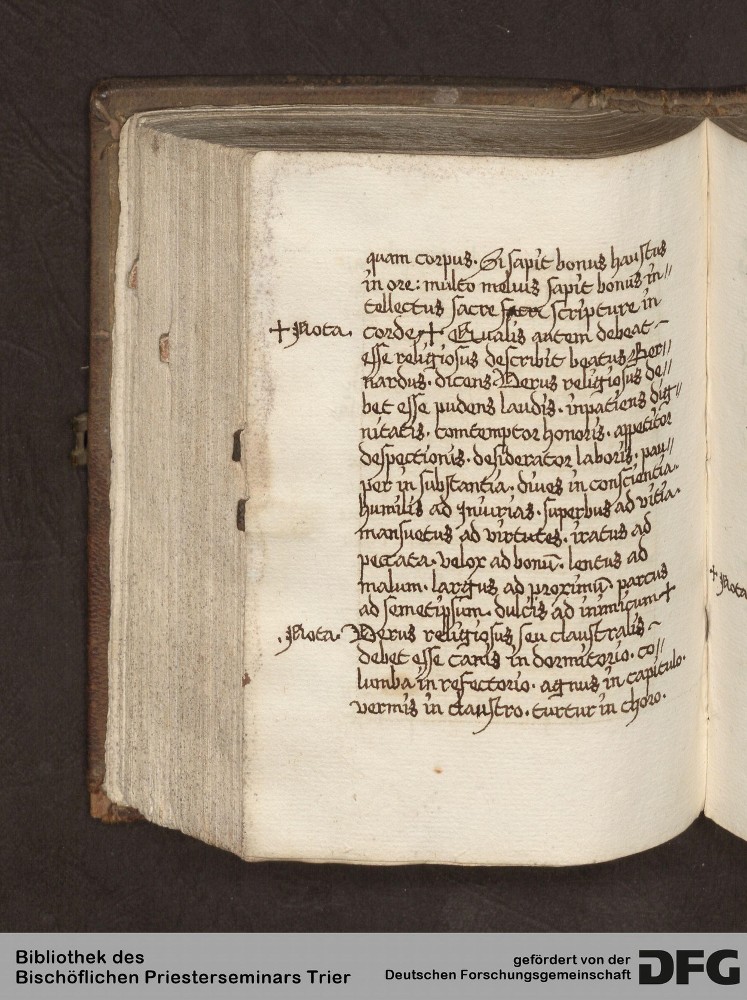 quam corpus. Si sapit bonus haustus
in ore: multo melius sapit bonus in//
tellectus sacre scripture in
+ Nota. corde + Qualis autem debeat
esse religiosus describit beatus Ber
nardus. dicens Verus religiosus de//
bet esse pudens laudis. inpatiens dig//
nitatis. comtemptor honoris. appetitor
despectionis. desiderator laboris. pau//
per in substantia. diues in conscientia.
humilis ad iniurias. superbus ad vitia.
mansuetus ad virtutes. iratus ad
peccata. velox ad bonū. lentus ad
malum. largus ad proximū. parcus
ad semetipsum. dulcis ad inimicum +
. Nota. Verus religiosus seu claustralis
debet esse canis in dormitorio. co//
lumba in refectorio. agnus in capitulo.
vermis in claustro. turtur in choro.
+ Nota
Bibliothek des
Bischöflichen Priesterseminars Trier
gefördert von der
Deutschen Forschungsgemeinschaft
DFG